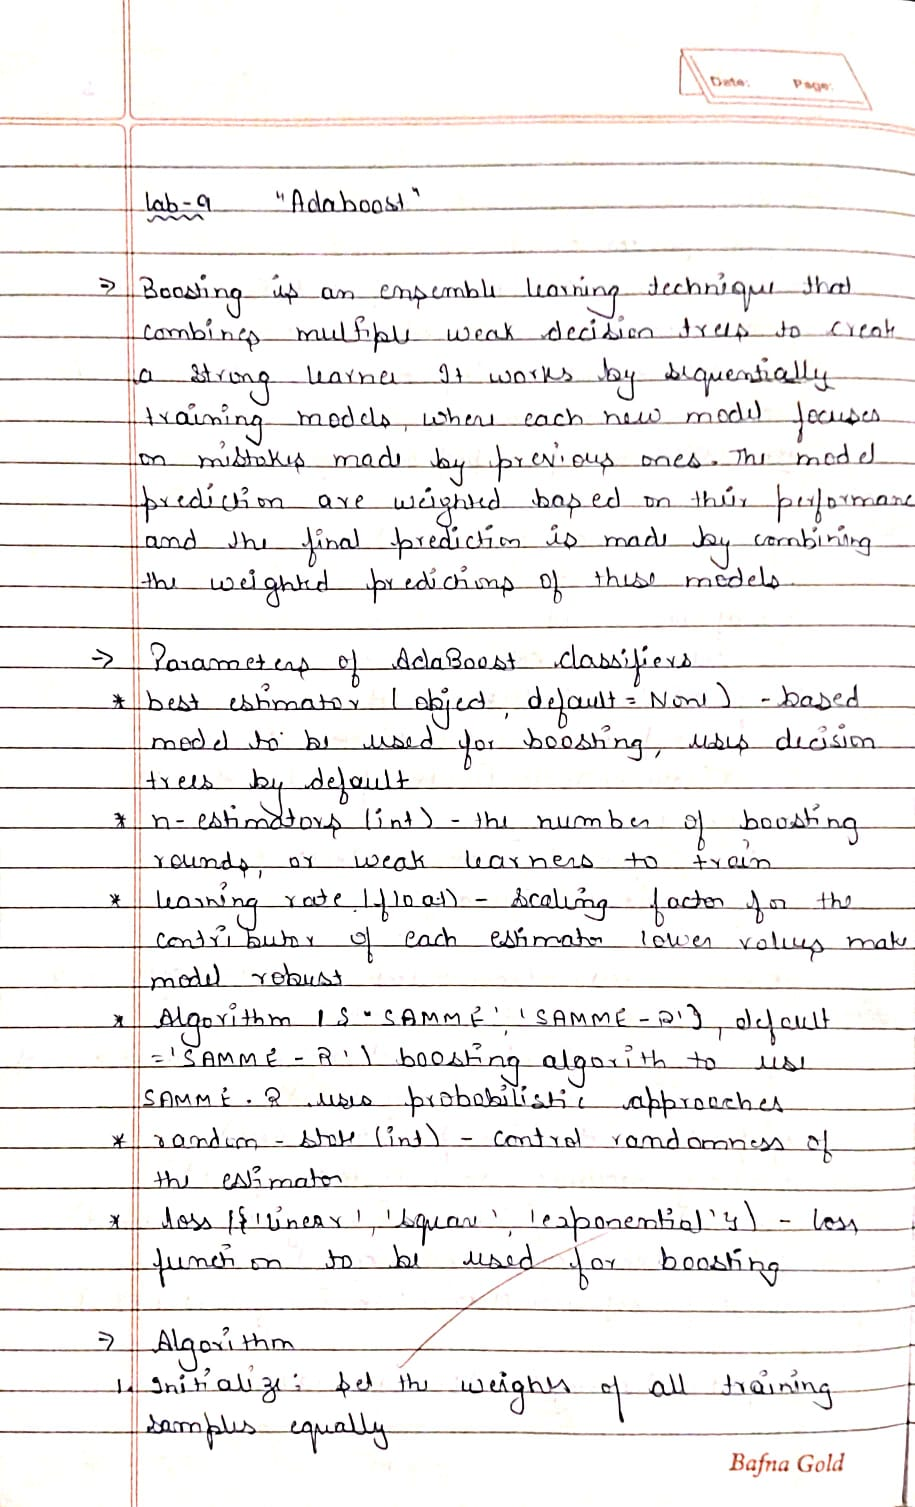 Date: Page:
Lab-9 "Adaboost"
⇒ Boosting is an ensemble learning technique that
combines multiple weak decision trees to create
a strong learner It works by sequentially
training models, where each new model focuses
on mistakes made by previous ones. The model
prediction are weighted based on their performanc
and the final prediction is made by combining
the weighted predictions of these models
⇒ Parameters of AdaBoost classifiers
* best estimator (object, default = None) - based
model to be used for boosting, uses decision
trees by default
* n-estimators (int) - the number of boosting
rounds, or weak learners to train
* learning rate (float) - scaling factor for the
contributor of each estimator lower values make
model robust
* Algorithm ({"SAMME', 'SAMME-R'}, default
='SAMME-R') boosting algorith to use
SAMME.R uses probabilistic approaches
* random-state (int) - control randomness of
the estimator
* loss ({'linear', 'square', 'exponential'}) - loss
function to be used for boosting
⇒ Algorithm
1. Initialize: set the weights of all training
samples equally
Bafna Gold